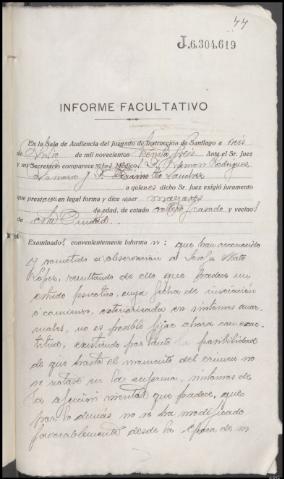 44
J.6.304.619
INFORME FACULTATIVO
En la Sala de Audiencia del Juzgado de Instrucción de Santiago a seis
de de mil novecientos treinta y seis Ante el Sr. Juez
y mi Secretario comparece los Médicos D. Ramon Rodriguez
y D. Sanchez
a quienes dicho Sr. Juez exigió juramento
que prestaron en legal forma y dice ser mayores
de edad, de estado y vecinos
de esta Ciudad.
Examinados convenientemente informan: que han reconocido
y sometido a observación al
López, resultando de ello que padece un
estado psicotico, cuya fecha de iniciación
o comienzo, exteriorizada en sintomas anor-
males, no es posible fijar ahora con exac-
titud, existiendo por tanto la posibilidad
de que hasta el momento del crimen no
se notase en la enferma, sintomas de
la afección mental que padece, que
por lo demás no se ha modificado
favorablemente desde la época de su